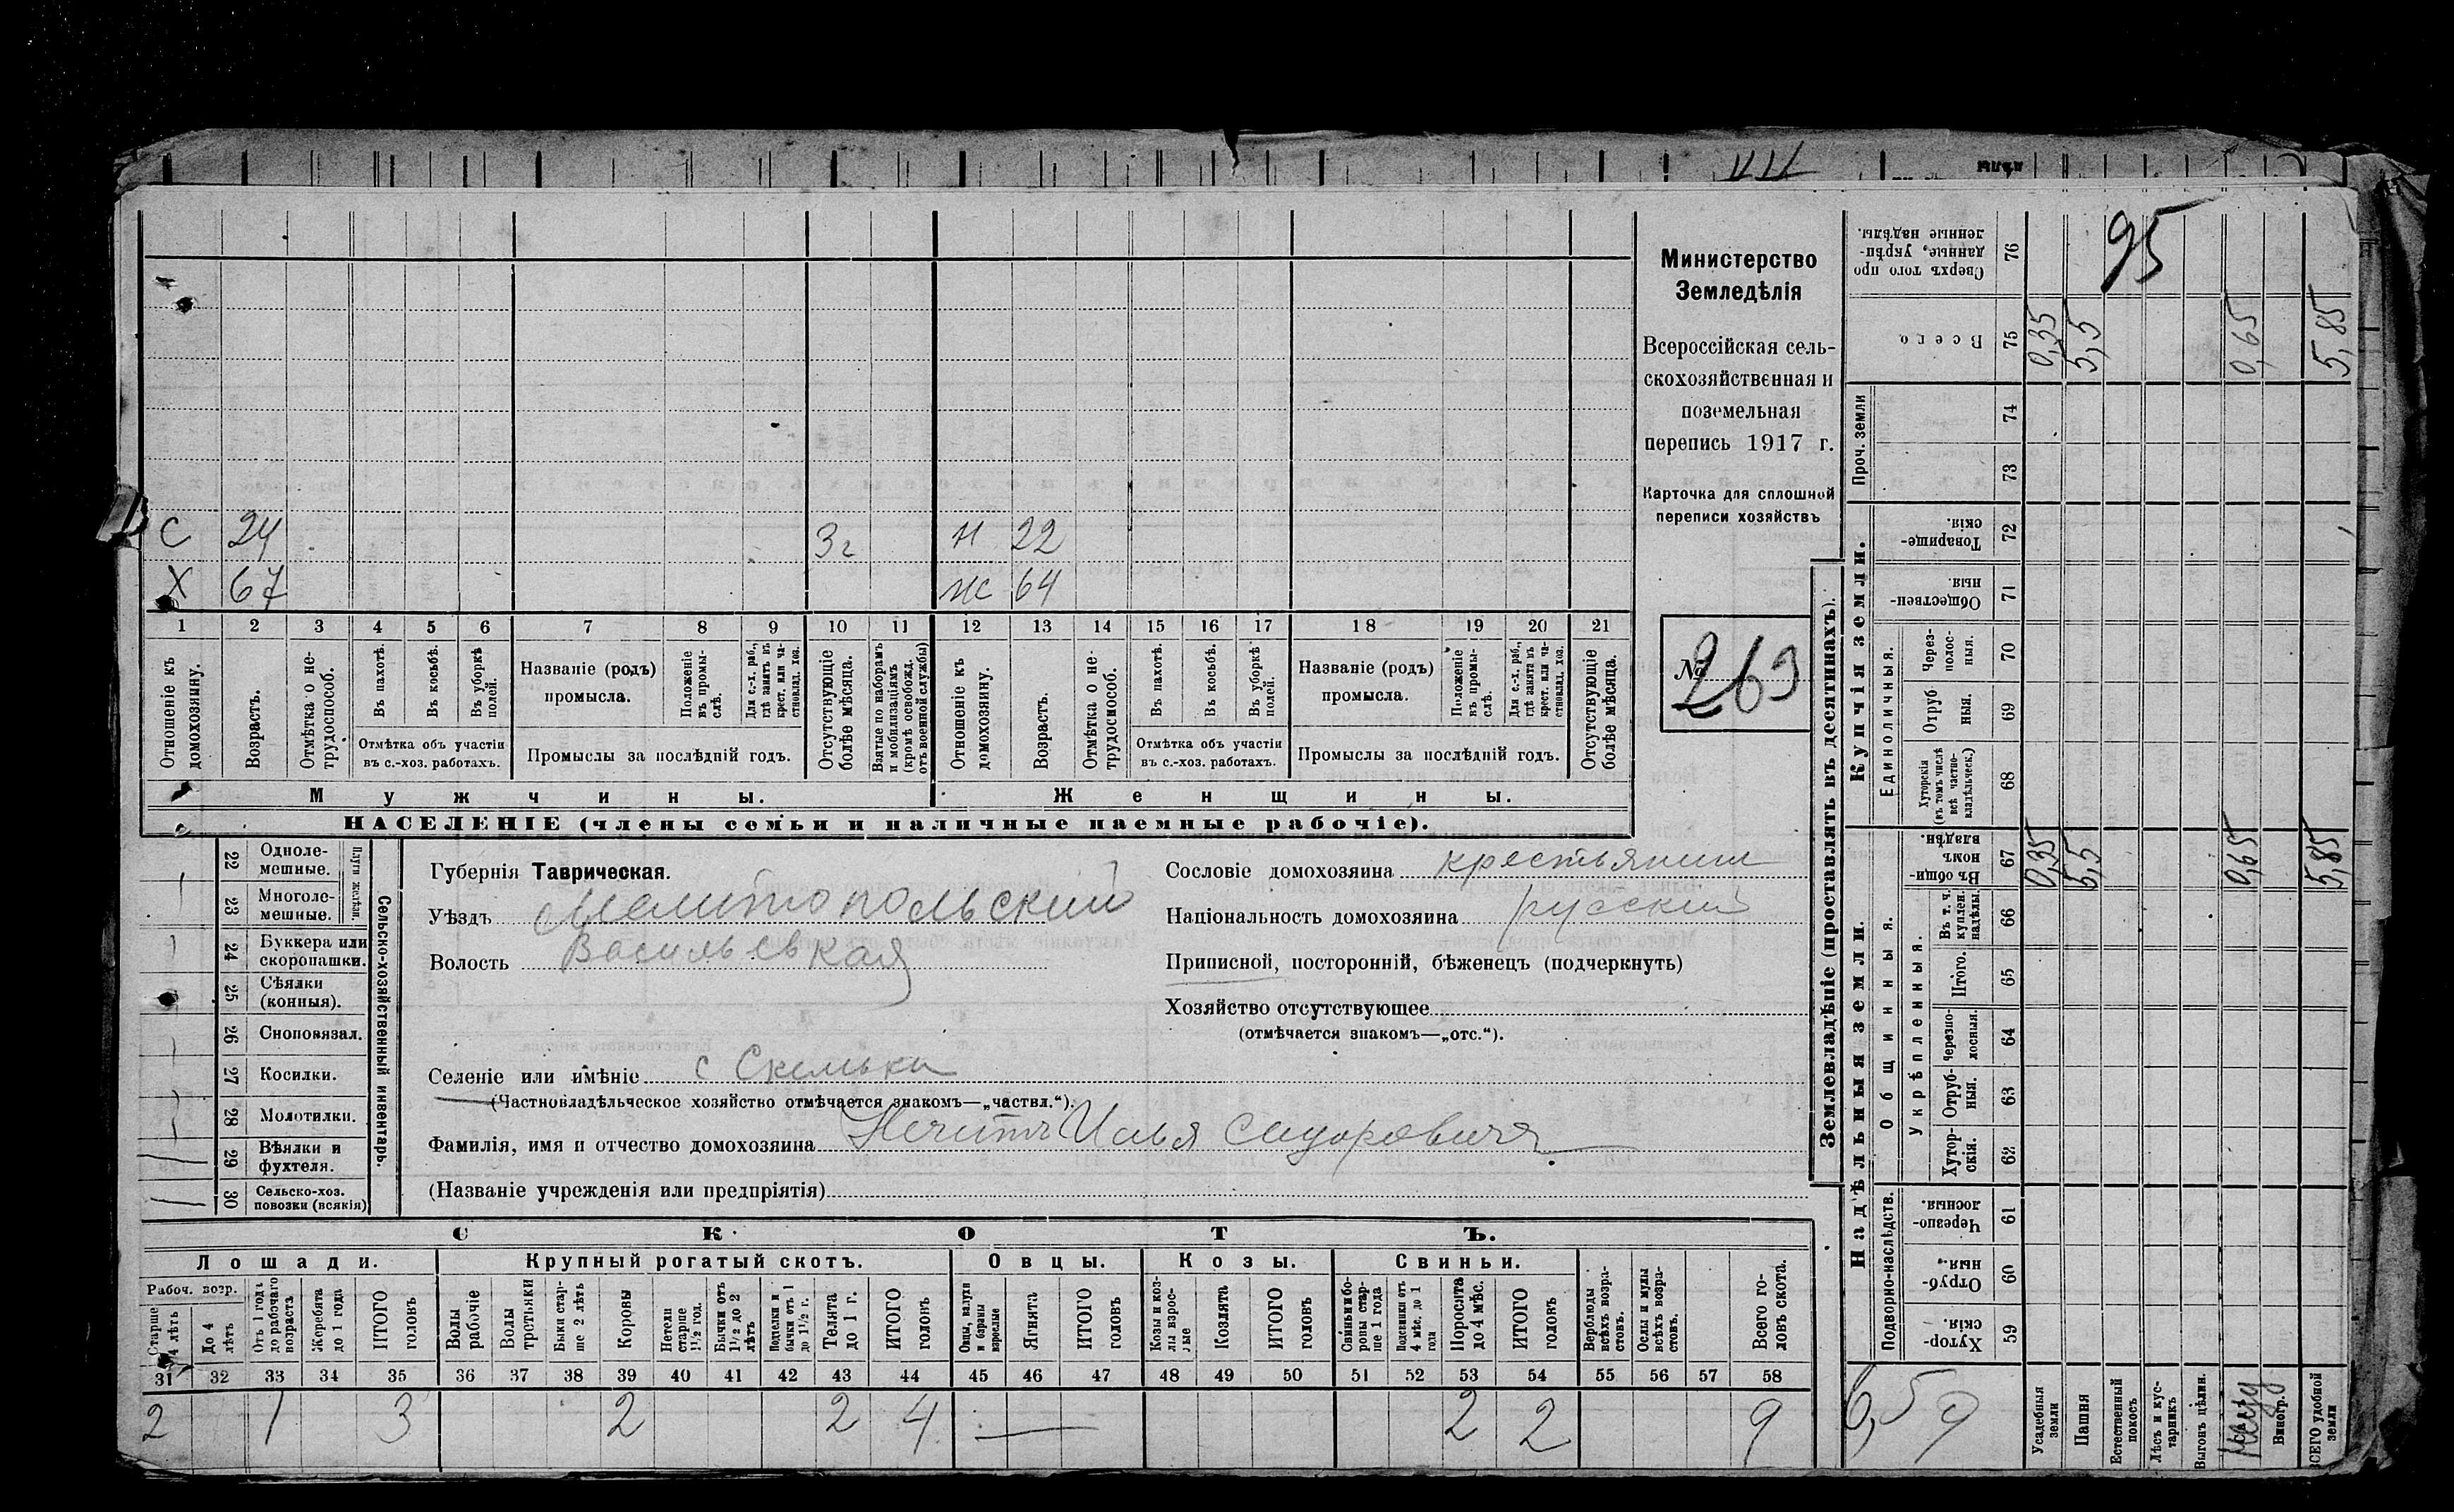 95
Министерство
Земледѣлія
Всероссійская сель-
скохозяйственная и
поземельная
перепись 1917 г.
Карточка для сплошной
переписи хозяйствъ
№ 263
С 24 3 г Н 22
Х 67 Ж 64
1 2 3 4 5 6 7 8 9 10 11 12 13 14 15 16 17 18 19 20 21
Отношеніе къ домохозяину.
Возрастъ.
Отмѣтка о не-трудоспособ.
Въ пахотѣ.
Въ косьбѣ.
Въ уборкѣ полей.
Отмѣтка объ участіи
въ с.-хоз. работахъ.
Названіе (родъ)
промысла.
Положеніе въ промы-слѣ.
Для с.-х. раб., гдѣ занятъ въ крест. или ча-стновлад. хоз.
Промыслы за послѣдній годъ.
Отсутствующіе болѣе мѣсяца.
Взятые по наборамъ и мобилизаціямъ (кромѣ освобожд. отъ военной службы)
Отношеніе къ домохозяину.
Возрастъ.
Отмѣтка о не-трудоспособ.
Въ пахотѣ.
Въ косьбѣ.
Въ уборкѣ полей.
Отмѣтка объ участіи
въ с.-хоз. работахъ.
Названіе (родъ)
промысла.
Положеніе въ промы-слѣ.
Для с.-х. раб., гдѣ занятъ въ крест. или ча-стновлад. хоз.
Промыслы за послѣдній годъ.
Отсутствующіе болѣе мѣсяца.
Мужчины. Женщины.
НАСЕЛЕНІЕ (члены семьи и наличные наемные рабочіе).
Сельско-хозяйственный инвентарь.
Плуги желѣзн.
22 Одноле-мешные.
23 Многоле-мешные.
24 Буккера или скоропашки.
25 Сѣялки (конныя).
26 Сноповязал.
27 Косилки.
28 Молотилки.
29 Вѣялки и фухтеля.
30 Сельско-хоз. повозки (всякія)
Губернія Таврическая.
Уѣздъ Мелитопольский
Волость Васильевкая
Селеніе или имѣніе с Скельки
(Частновладѣльческое хозяйство отмѣчается знакомъ—„частвл.“).
Фамилія, имя и отчество домохозяина Нечитъ Илья Сидоровичъ
(Названіе учрежденія или предпріятія)
Сословіе домохозяина крестьянин
Національность домохозяина русский
Приписной, посторонній, бѣженецъ (подчеркнуть)
Хозяйство отсутствующее
(отмѣчается знакомъ—„отс.“).
СКОТЪ.
Лошади. Крупный рогатый скотъ. Овцы. Козы. Свиньи.
Рабоч. возр.
Старше 4 лѣтъ
До 4 лѣтъ
Отъ 1 года до рабочаго возраста
Жеребята до 1 года
ИТОГО головъ
Волы рабочіе
Волы третьяки
Быки стар-ше 2 лѣтъ
Коровы
Нетели старше 1½ год.
Бычки отъ 1½ до 2 лѣтъ
Подтелки и бычки отъ 1 до 1½ г.
Телята до 1 г.
ИТОГО головъ
Овцы, валухи и бараны взрослые
Ягнята
ИТОГО головъ
Козы и коз-лы взрос-лые
Козлята
ИТОГО головъ
Свиньи и бо-ровы стар-ше 1 года
Подсвинки отъ 4 мѣс. до 1 года
Поросята до 4 мѣс.
ИТОГО головъ
Верблюды всѣхъ возра-стовъ.
Ослы и мулы всѣхъ возра-стовъ.
Всего го-ловъ скота.
31 32 33 34 35 36 37 38 39 40 41 42 43 44 45 46 47 48 49 50 51 52 53 54 55 56 57 58
2 1 3 2 2 4 — 2 2 9
Землевладѣніе (проставлять въ десятинахъ).
Надѣльныя земли.
Купчія земли.
Проч. земли
Подворно-наслѣдств.
Общинныя.
Укрѣпленныя.
Единоличныя.
Сверхъ того про-данные, укрѣп-ленные надѣлы. 76
Всего 75 0,35 5,5 0,65 5,85
74
73
Товарище-скія. 72
Обществен-ныя. 71
Через-полос-ныя. 70
Отруб-ныя. 69
Хуторскія (въ томъ числѣ всѣ частно-владѣльческ.) 68
Въ общи-номъ владѣн. 67 0,35 5,5 0,65 5,85
Въ т. ч. куплен. надѣлы 66
Итого. 65
Черезпо-лосныя. 64
Отруб-ныя. 63
Хутор-скія. 62
Черезпо-лосныя. 61
Отруб-ныя. 60
Хутор-скія. 59
6,5 9
Усадебныя земли
Пашня
Естественный покосъ
Лѣсъ и кус-тарникъ
Выгонъ цѣлин.
Виногр.
ВСЕГО удобной земли